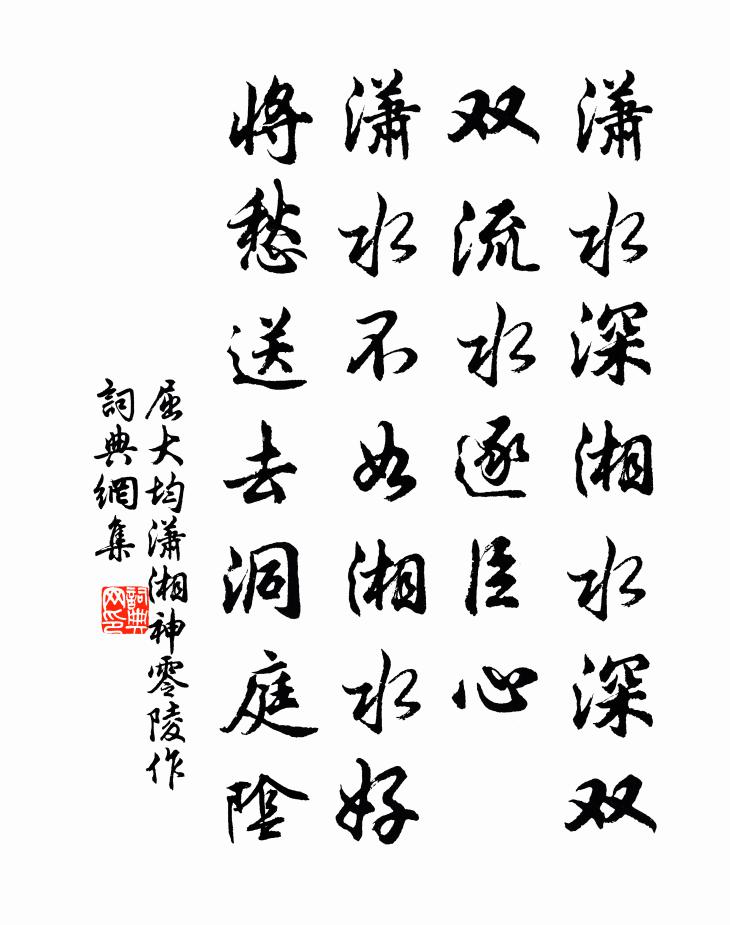 瀟水深湘水深双
双流水逐臣心
瀟水不如湘水好
將愁送去洞庭陰
屈大均瀟湘神零陵作
詞典網集
詞典
网印